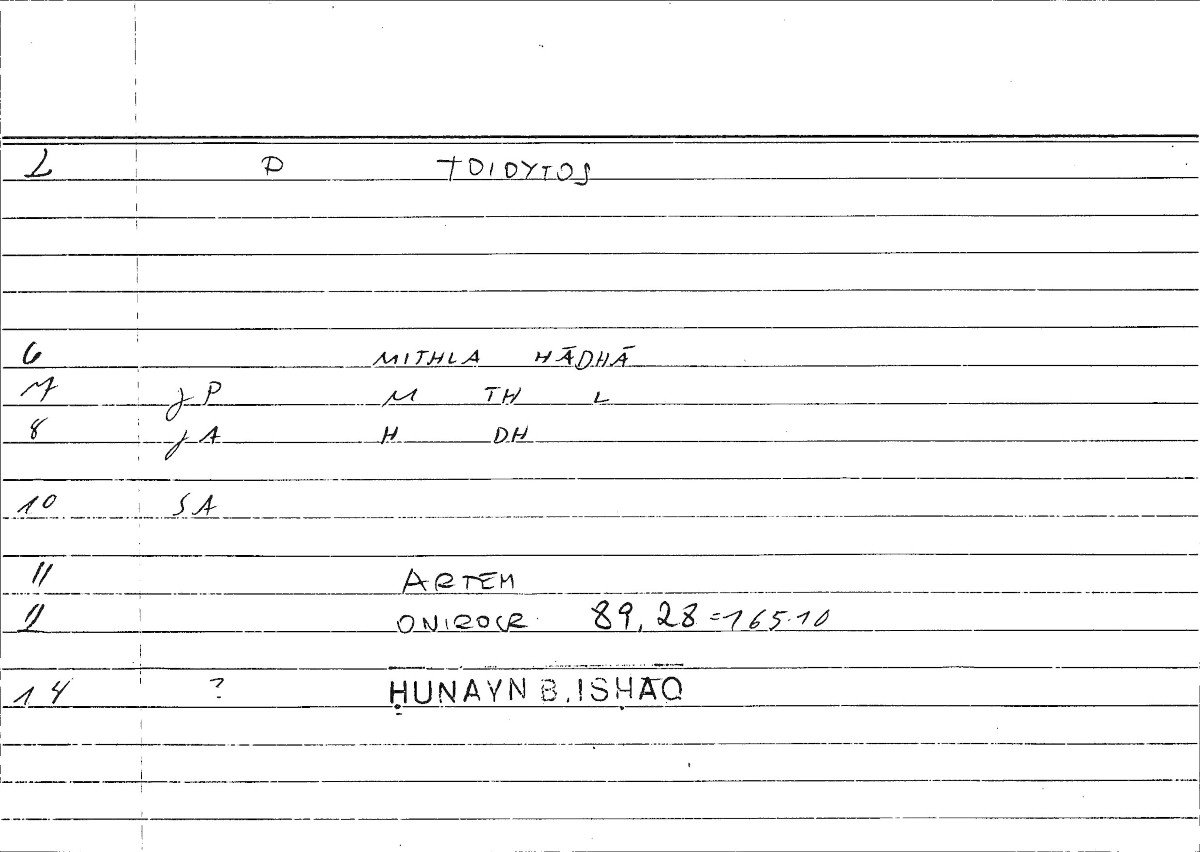 2 P TOIOYTOS
6 MITHLA HĀDHĀ
7 jP M TH L
8 jA H DH
10 SA
11 ARTEM
12 ONIROCR. 89,28=165.10
14 ? ḤUNAYN B. ISḤĀQ